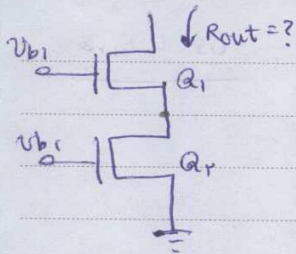 Rout = ?
Vb1
Q1
Vb۲
Q۲